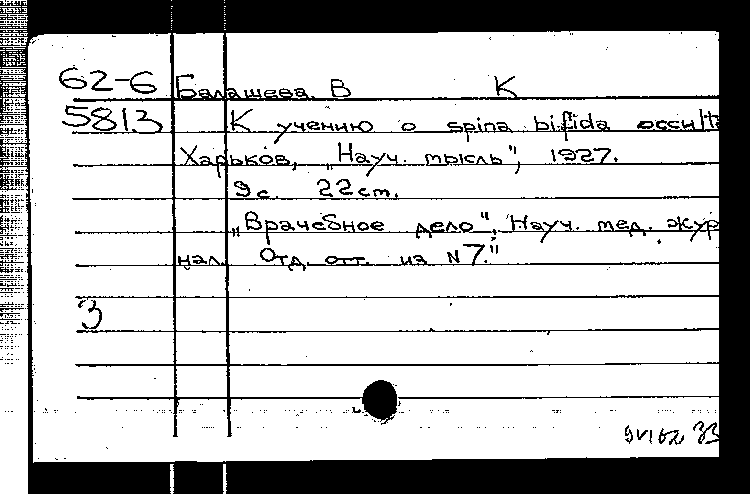 62-6 Балашева. В К
5813 К учению о spina bifida occulta
Харьков, „Науч. мысль", 1927.
9 с. 22 cm.
„Врачебное дело", Науч. мед. жур-
нал. Отд. отт. из N 7."
3